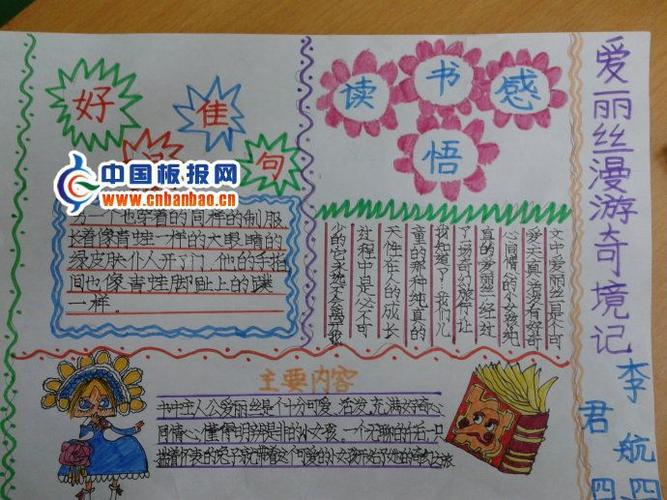 好
佳
句
中国板报网
www.cnbanbao.cn
另一个也穿着的同样的制服
长着像青蛙一样的大眼睛的
绿皮肤仆人开了门，他的手指
间也像青蛙脚趾上的蹼
一样。
读书感
悟
文中爱丽丝是个可
爱天真活泼有好奇
心同情心的小女孩纯
真的爱丽丝经过
了一场奇幻旅行让
我知道了：我们儿
童的那种纯真的
天性在人的成长
过程中是必不可
少的
主要内容
书中主人公爱丽丝是个十分可爱、活泼、充满好奇心
同情心、懂得明辨是非的小女孩。一个无聊的午后，只
爱丽丝漫游奇境记
李君航
四四